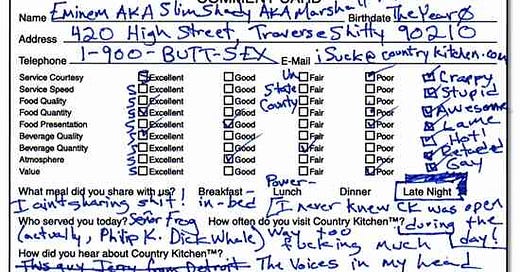 COMMENT CARD
Name Eminem AKA Slim Shady AKA Marshall Birthdate The Year 0
Address 420 High Street, Traverse Shitty 90210
Telephone 1-900-BUTT-SEX E-Mail iSuck@countrykitchen.com
Service Courtesy S Excellent Good Un Fair Poor Crappy
Service Speed S Excellent Good State Fair Poor Stupid
Food Quality S Excellent Good County Fair Poor
Food Quantity S Excellent Good Fair Poor Awesome
Food Presentation S Excellent Good Fair Poor Lame
Beverage Quality S Excellent Good Fair Poor Hot!
Beverage Quantity S Excellent Good Fair Poor Retarded
Atmosphere S Excellent Good Fair Poor Gay
Value S Excellent Good Fair Poor
What meal did you share with us? Breakfast-in-bed Power-Lunch Dinner Late Night
I ain't sharing shit! I never knew CK was open during the day!
Who served you today? Señor Frog How often do you visit Country Kitchen™?
(actually, Philip K. Dick Whale) Way too fucking much
How did you hear about Country Kitchen™?
This guy Jerry from Detroit The Voices in my head